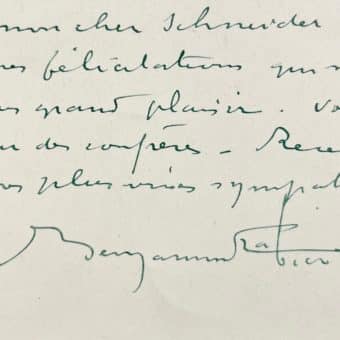 mon cher Schneider
res félicitations qui m
us grand plaisir. Vo
ur des confrères – Rece
vos plus vives sympat
Benjamin Rabier